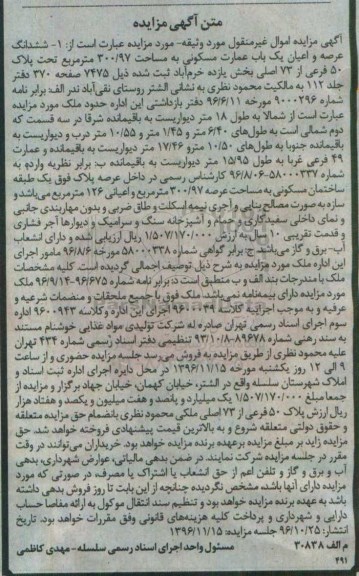 متن آگهی مزایده
آگهی مزایده اموال غیرمنقول مورد وثیقه- مورد مزایده عبارت است از: ۱- ششدانگ
عرصه و اعیان یک باب عمارت مسکونی به مساحت ۳۰۰/۹۷ مترمربع تحت پلاک
۵۰ فرعی از ۷۳ اصلی بخش یازده خرم‌آباد ثبت شده ذیل ۷۴۷۵ صفحه ۳۷۰ دفتر
جلد ۱۱۲ به مالکیت محمود نظری به نشانی الشتر روستای نقی‌آباد نذر الف: برابر نامه
شماره ۹۰۰۰۲۹۶ مورخه ۹۶/۶/۱۱ دفتر بازداشتی این اداره حدود ملک مورد مزایده
عبارت است از شمالا به طول ۱۸ متر دیواریست به باقیمانده شرقا در سه قسمت که
دوم شمالی است به طول‌های ۶/۴۰ متر و ۱/۴۵ متر و ۱۰/۵۵ متر درب و دیواریست به
باقیمانده جنوبا به طول‌های ۱۰/۵۰ مترو ۱۷/۴۶ متر دیواریست به باقیمانده و عمارت
۴۹ فرعی غربا به طول ۱۵/۹۵ متر دیواریست به باقیمانده ب: برابر نظریه وارده به
شماره ۵۸۰۰۰۳۳۷-۹۶/۸/۰۶ کارشناس رسمی در داخل عرصه پلاک فوق یک طبقه
ساختمان مسکونی به مساحت عرصه ۳۰۰/۹۷ مترمربع و اعیانی ۱۲۶ مترمربع می‌باشد و
سازه به صورت مصالح بنایی و آجری نیمه اسکلت و طاق ضربی و بدون مهاربندی جانبی
و نمای داخلی سفیدکاری و حمام و آشپزخانه سنگ و سرامیک و دیوارها آجر فشاری
و قدمت تقریبی ۱۰ سال به ارزش ۱/۵۰۷/۱۷۰/۰۰۰ ریال ارزیابی شده و دارای انشعاب
آب- برق و گاز می‌باشد ج: برابر گواهی شماره ۵۸۰۰۰۳۳۸ مورخه ۹۶/۸/۶ مامور اجرای
این اداره ملک مورد مزایده به شرح ذیل توصیف اجمالی گردیده است. کلیه مشخصات
ملک با مندرجات بند الف و ب منطبق است د: برابر نامه شماره ۹۶/۶۷۵-۹۶/۹/۱۴ ملک
مورد مزایده دارای بیمه‌نامه نمی‌باشد. ملک فوق با جمیع ملحقات و منضمات شرعیه و
عرفیه و به موجب اجرائیه کلاسه ۹۶۰۰۰۳۹ اجرای این اداره و کلاسه ۹۶۰۰۹۴۳ اداره
سوم اجرای اسناد رسمی تهران صادره له شرکت تولیدی مواد غذایی خوشنام مستند
به سند رهنی شماره ۸۹۶۷۸-۹۳/۱۰/۸ تنظیمی دفتر اسناد رسمی شماره ۴۳۴ تهران
علیه محمود نظری از طریق مزایده به فروش می‌رسد جلسه مزایده حضوری و از ساعت
۹ الی ۱۲ روز یکشنبه مورخه ۱۳۹۶/۱۱/۱۵ در محل دایره اجرای اداره ثبت اسناد و
املاک شهرستان سلسله واقع در الشتر، خیابان کهمان، خیابان جهاد برگزار و مزایده از
جمعا مبلغ ۱/۵۰۷/۱۷۰/۰۰۰ یک میلیارد و پانصد و هفت میلیون و یکصد و هفتاد هزار
ریال ارزش پلاک ۵۰ فرعی از ۷۳ اصلی ملکی محمود نظری بانضمام حق مزایده متعلقه
و حقوق دولتی متعلقه شروع و به بالاترین قیمت پیشنهادی فروخته خواهد شد. حق
مزایده زاید بر مبلغ مزایده برعهده برنده مزایده خواهد بود. خریداران می‌توانند در وقت
مقرر در جلسه مزایده شرکت نمایند. در ضمن بدهی مالیاتی، عوارض شهرداری، بدهی
آب و برق و گاز و تلفن اعم از حق انشعاب یا اشتراک یا مصرف، در صورتی که مورد
مزایده دارای آنها باشد، مشخص نگردیده چنانچه از این بابت تا روز فروش بدهی داشته
باشد به عهده برنده مزایده خواهد بود و تنظیم سند انتقال موکول به ارائه مفاصا حساب
دارایی و شهرداری و پرداخت کلیه هزینه‌های قانونی وفق مقررات خواهد بود. تاریخ
انتشار: ۹۶/۱۰/۲۵ جلسه مزایده: ۱۳۹۶/۱۱/۱۵
م الف ۳۰۸۳۸ مسئول واحد اجرای اسناد رسمی سلسله- مهدی کاظمی
۴۹۱